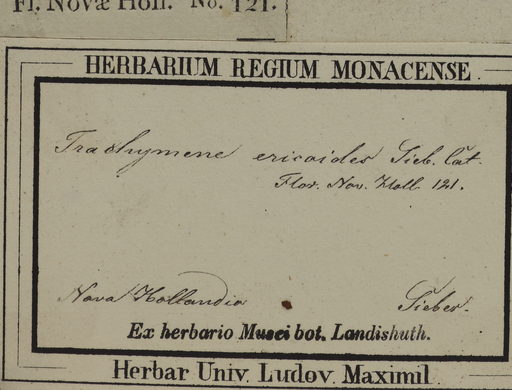 Fl. Novæ Holl. No. 121.
HERBARIUM REGIUM MONACENSE
Trachymene ericoides Sieb. Cat.
Flor. Nov. Holl. 121.
Nova Hollandia Sieber.
Ex herbario Musei bot. Landishuth.
Herbar Univ. Ludov. Maximil.